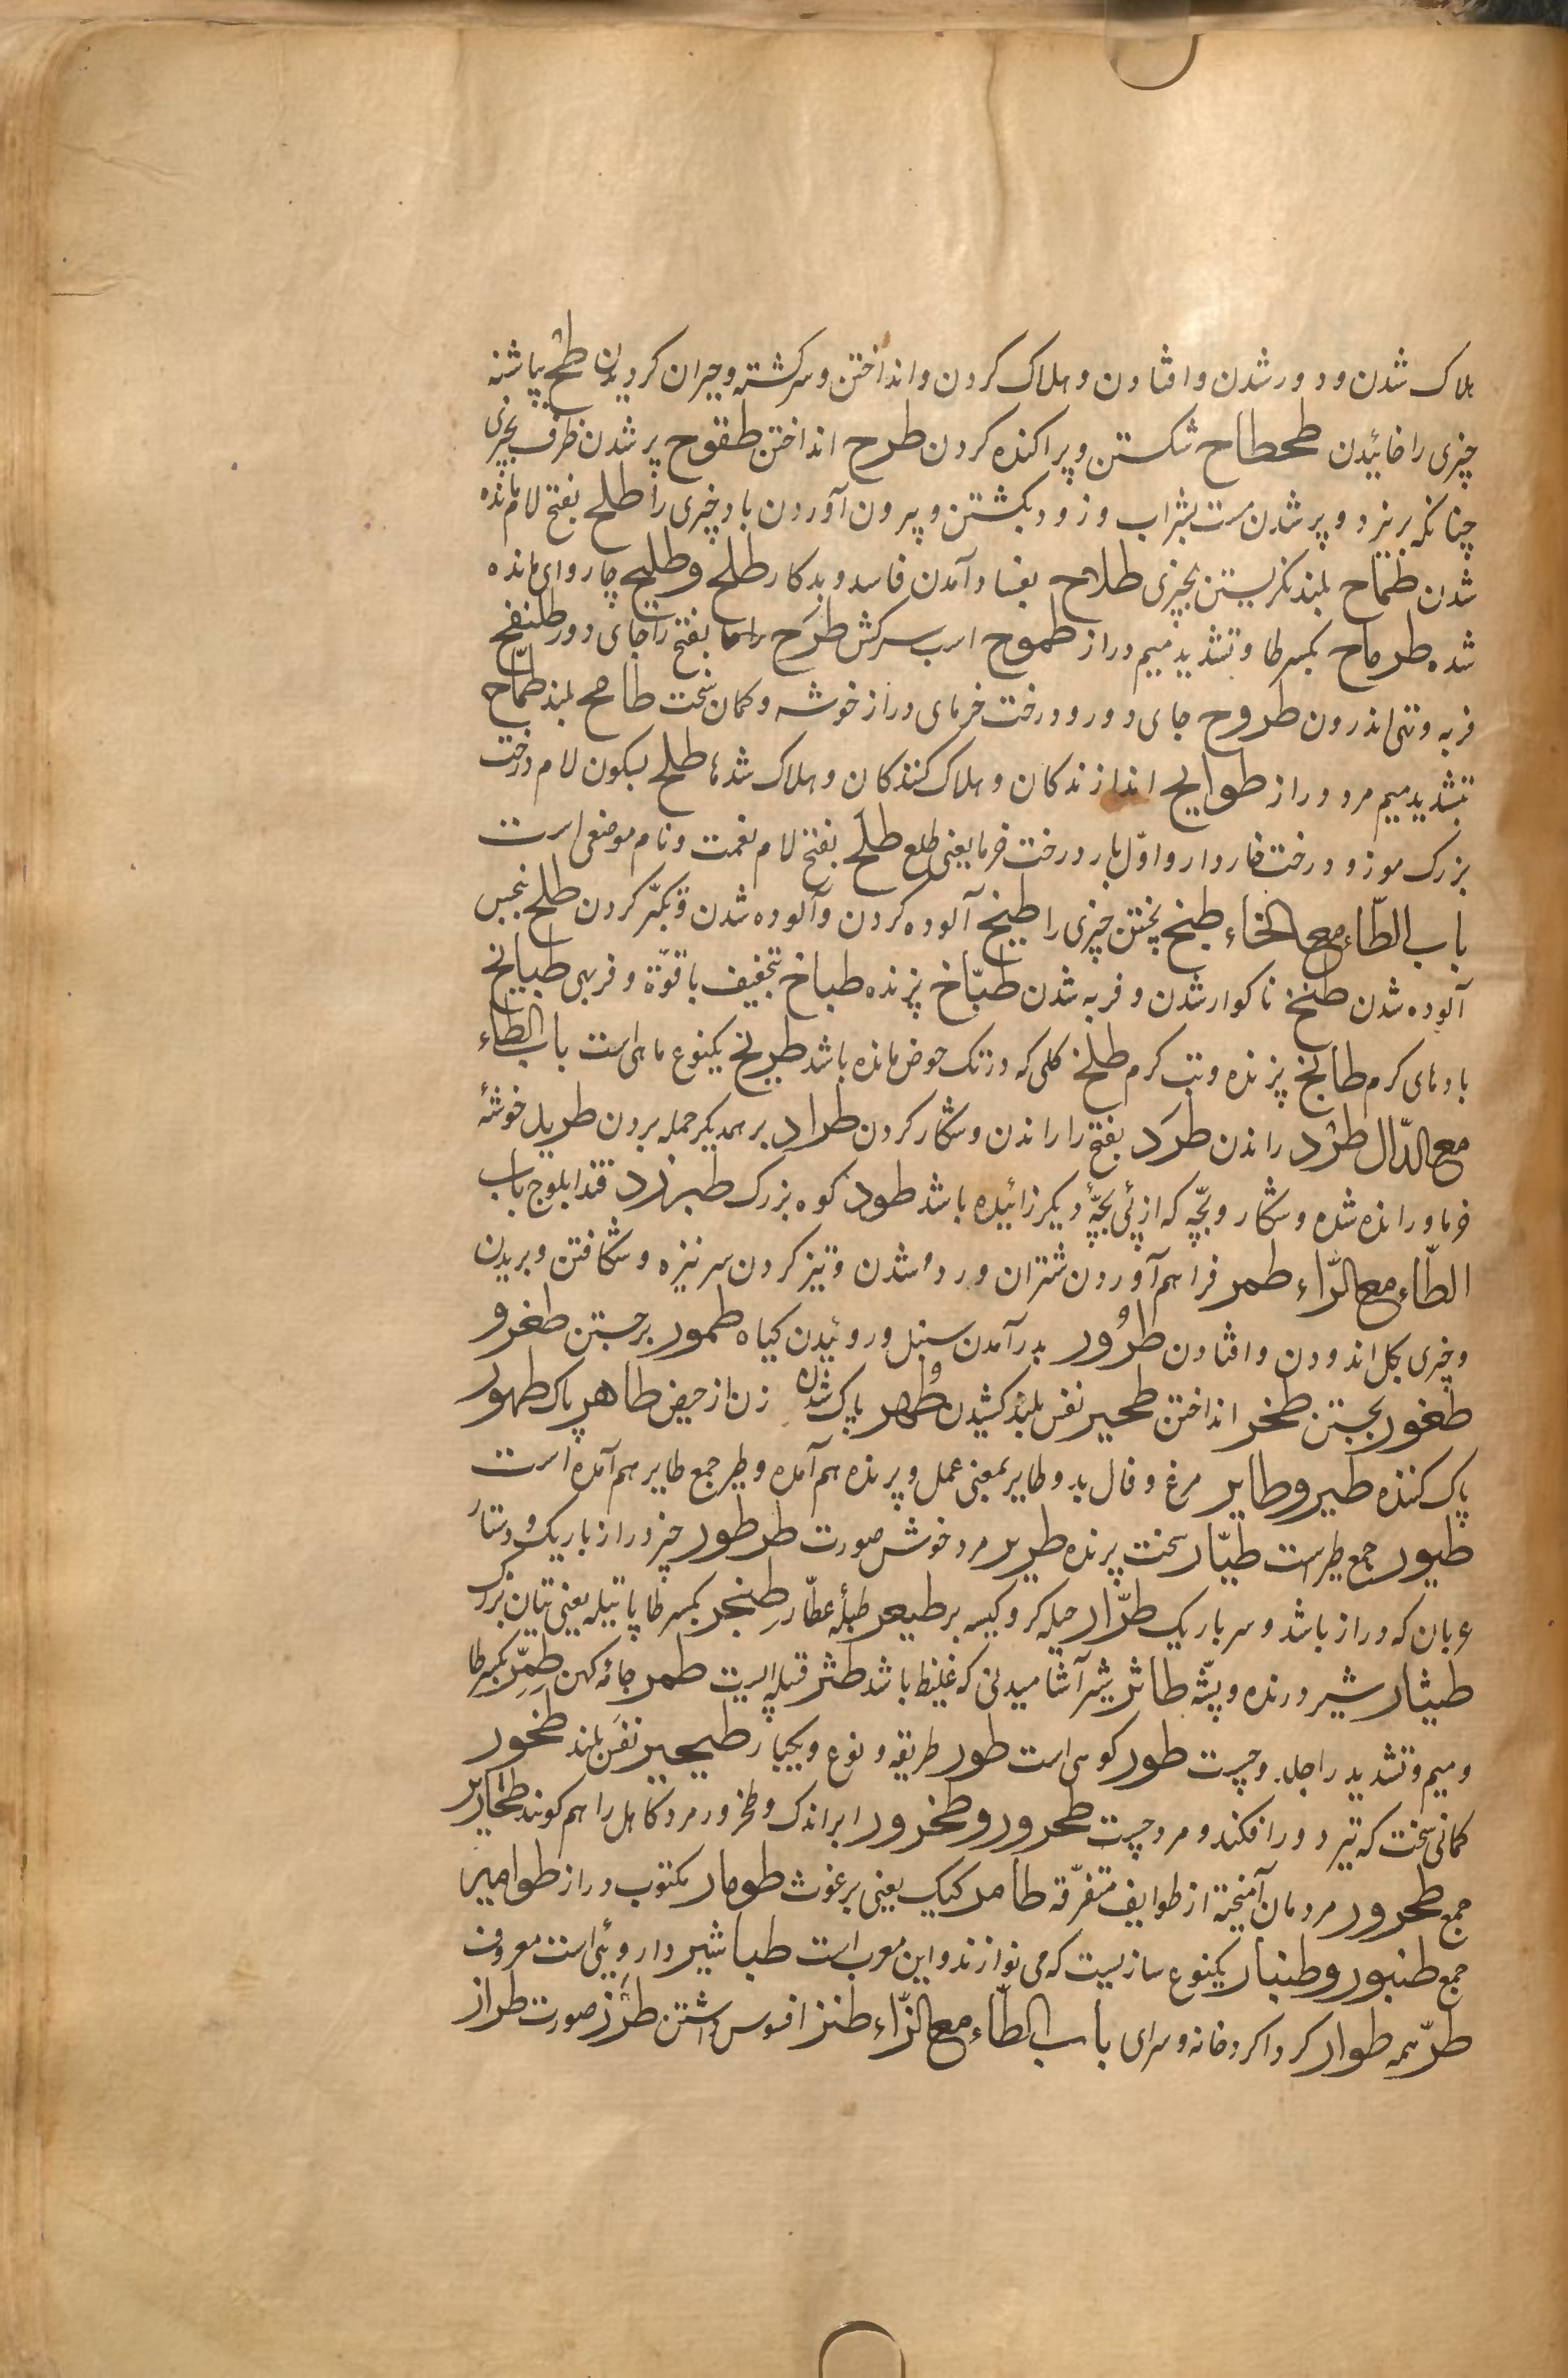 هلاک شدن و دور شدن و افتادن و هلاک کردن و انداختن و سرکشته و حیران کردیدن طح بپاشنه
چیزی را خائیدن طحطاح شکستن و پراکنده کردن طرح انداختن طفوح پر شدن ظرف بچیزی
چنانکه بریزد و پر شدن مست بشراب و زود بکشتن و بیرون آوردن باد چیزی را طلح بفتح لام مانده
شدن طماح بلند نکریستن بچیزی طلاح بفساد آمدن فاسد و بدکار طلح و طلیح چاروای مانده
شده طرماح بکسر طا و تشدید میم دراز طموح اسب سرکش طرح بفتح را جای دور طلنفح
فربه و تنی اندرون طروح جای دور و درخت خرمای دراز خوشه و کمان سخت طامح بلند طمّاح
بتشدید میم مرد دراز طوایح اندازندکان و هلاک کنندکان و هلاک شدها طلح بسکون لام درخت
بزرک موز و درخت خاردار و اوّل بار درخت خرما یعنی طلع طلح بفتح لام نعمت و نام موضعی است
باب الطّاء مع الخاء طبخ پختن چیزی را طیخ آلوده کردن و آلوده شدن و تکبّر کردن طلخ بنجس
آلوده شدن طنخ ناکوار شدن و فربه شدن طبّاخ پزنده طباخ بتخفیف با قوّة و فربهی طبایخ
بادهای کرم طابخ پزنده و تب کرم طلخ کلی که در تک حوض مانده باشد طریخ یکنوع ماهی است باب الطاء
مع الدّال طرد راندن طرَد بفتح را راندن و شکار کردن طراد بر همدیکر حمله بردن طرید خوشهٔ
خرما و رانده شده و شکار و بچّه که از پئی بچّهٔ دیکر زائیده باشد طود کوه بزرک طبرزد قند ابلوج باب
الطّاء مع الرّاء طمر فراهم آوردن شتران و رد شدن و تیز کردن سر نیزه و شکافتن و بریدن
و چیزی بکل اندودن و افتادن طرُور بدر آمدن سنبل و روئیدن کیاه طمور برجستن طفر و
طفور بجستن طحر انداختن طحیر نفس بلند کشیدن طُهر پاک شدن زن از حیض طاهر پاک طهور
پاک کننده طیر و طایر مرغ و فال بد و طایر بمعنی عمل و پرنده هم آمده و طیر جمع طایر هم آمده است
طیور جمع طیر است طیّار سخت پرنده طریر مرد خوش صورت طرطور چیز دراز باریک و دستار
عربان که دراز باشد و سر باریک طرّار حیله کر و کیسه بر طبلهٔ عطّار طنجر بکسر طا پاتیله یعنی تیان بزرک
طیثار شیر درنده و پشّه طاثر شیر آشامیدنی که غلیظ باشد طثر قبیله ایست طمر جامهٔ کهن طمِرّ بکسر طا
و میم و تشدید را جلد و چست طور کوهی است طور طریقه و نوع و یکبار طحیر نفَس بلند طحور
کمانی سخت که تیر دور افکند و مرد چست طحرور و طخرور ابر اندک و طخرور مرد کاهل را هم کویند طخاریر
جمع طخرور مردمان آمیخته از طوایف متفرّقه طامر کیک یعنی برغوث طومار مکتوب دراز طوامیر
جمع طنبور و طنبار یکنوع سازیست که می نوازند و این معرب است طباشیر داروئی است معروف
طرّ همه طوار کرداکرد خانه و سرای باب الطّاء مع الزّاء طنز افسوس داشتن طرز صورت طراز